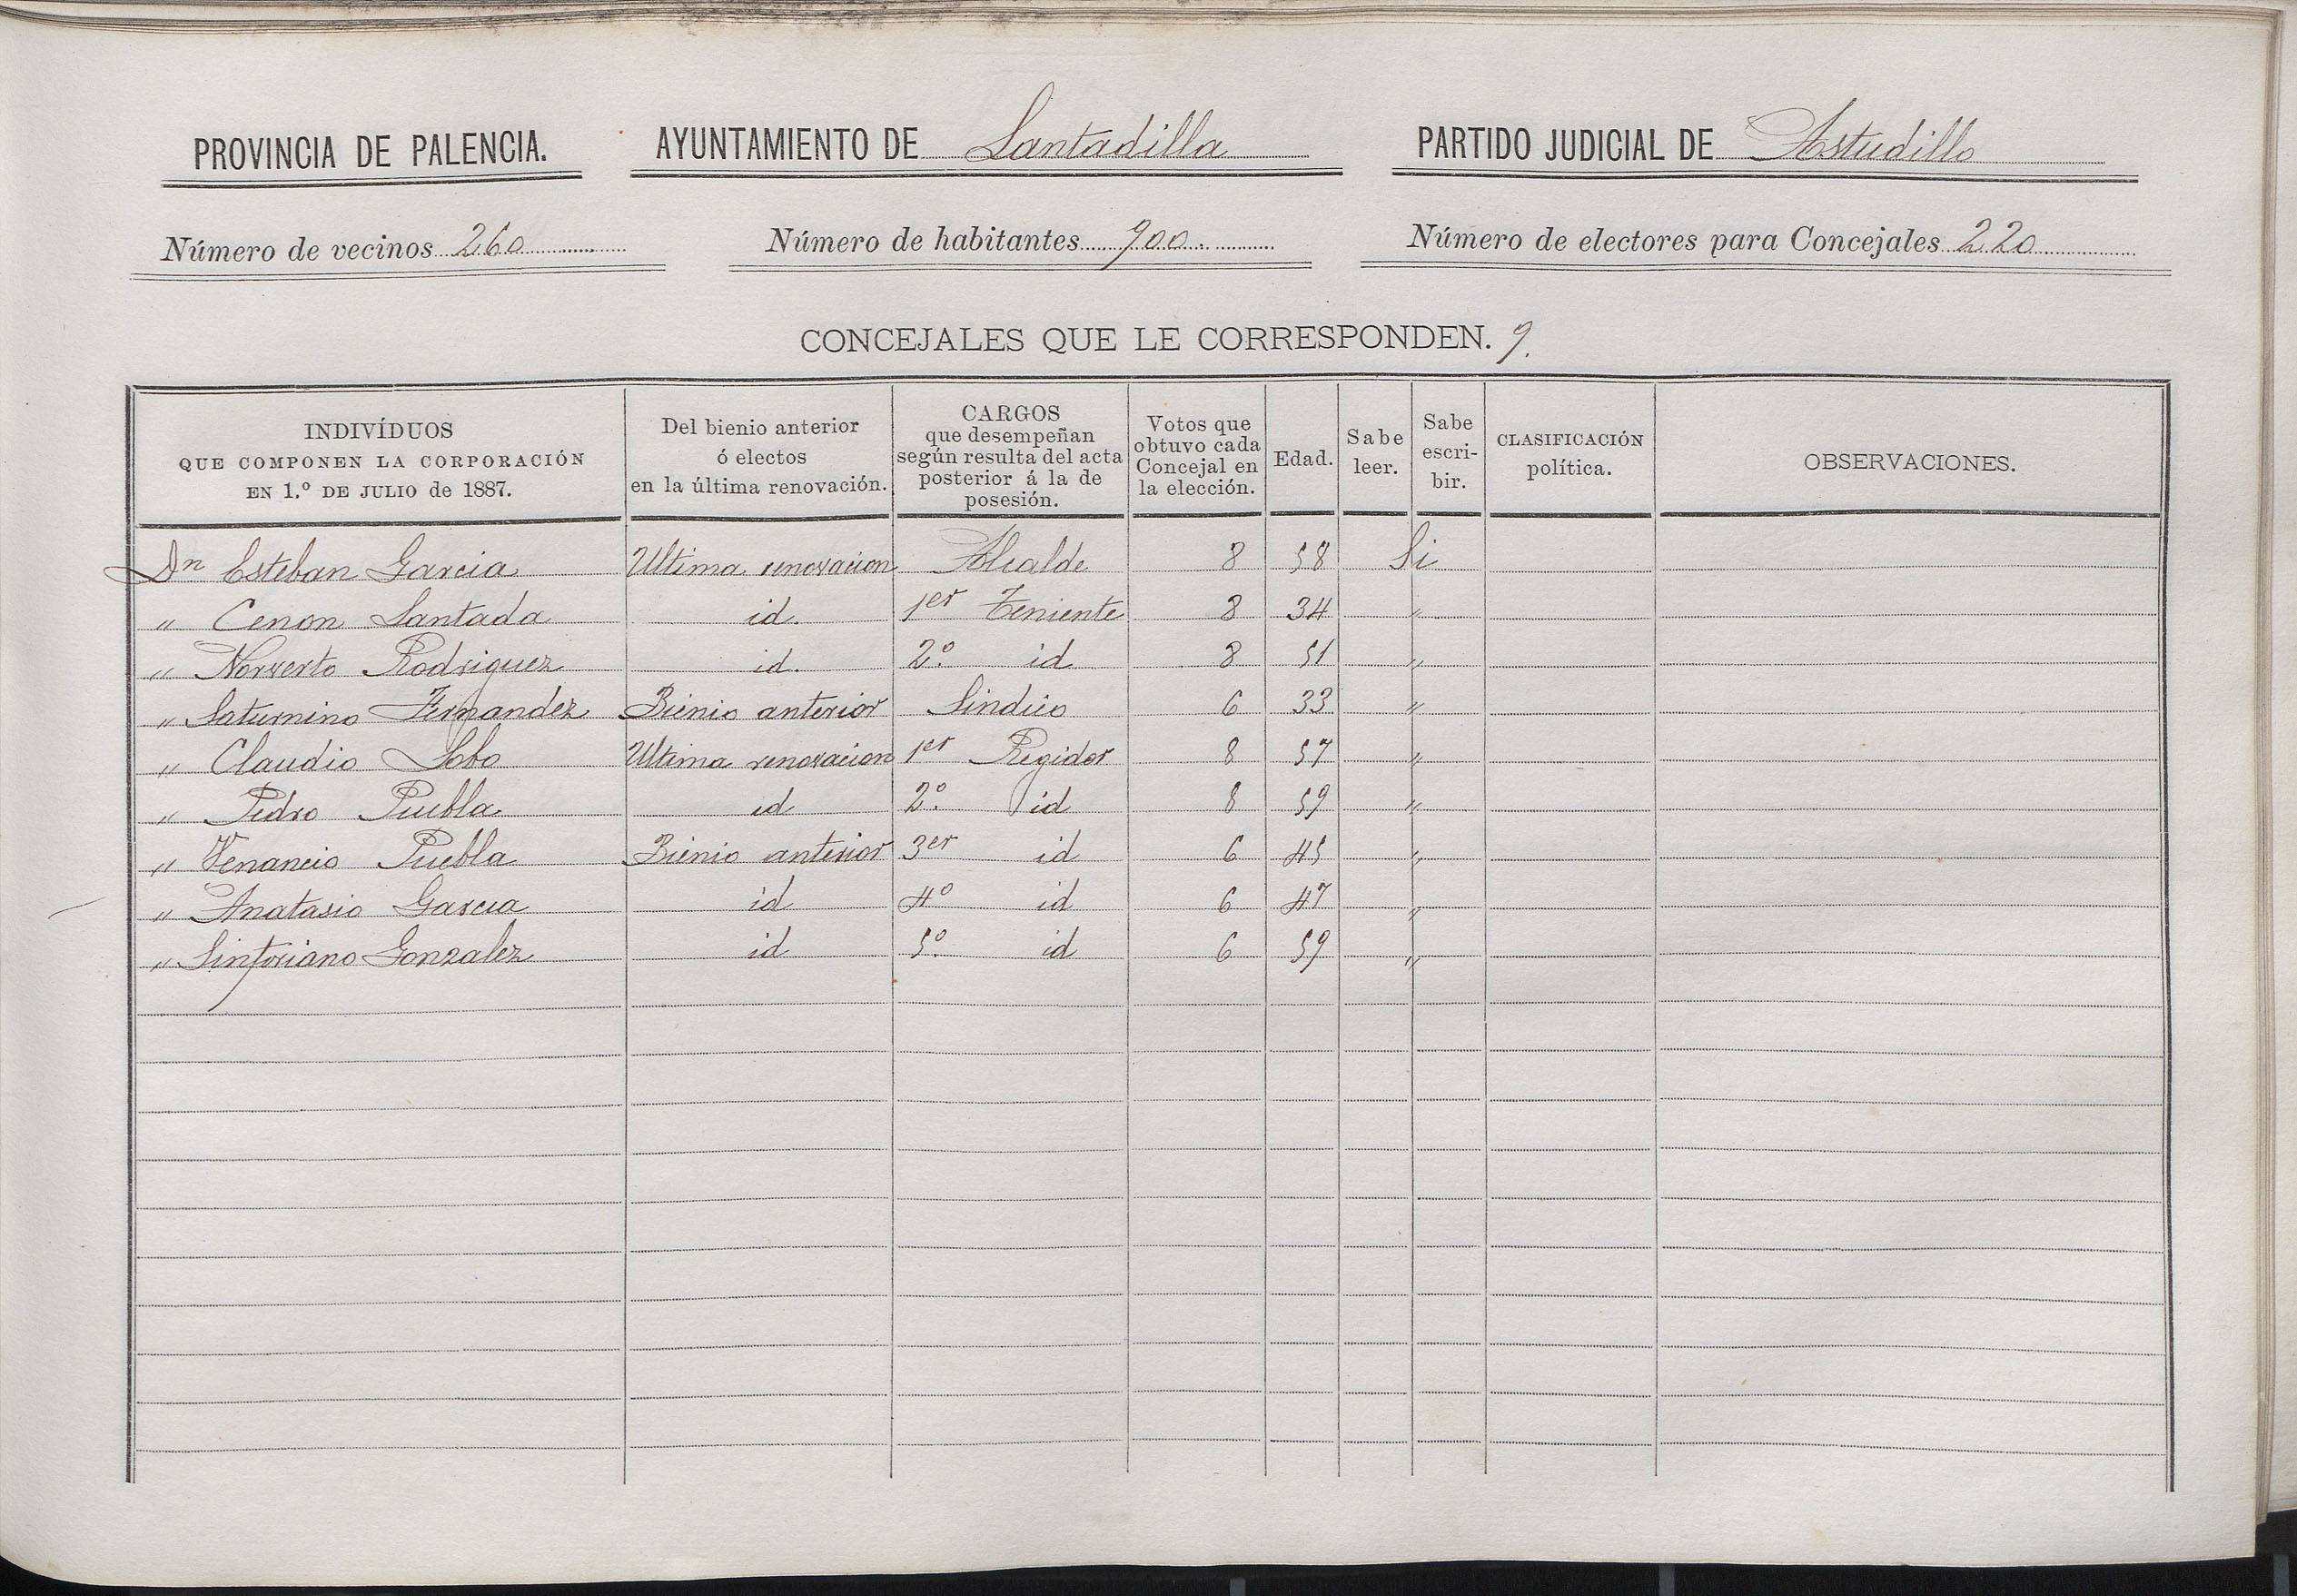 PROVINCIA DE PALENCIA. AYUNTAMIENTO DE Lantadilla PARTIDO JUDICIAL DE Astudillo
Número de vecinos 260 Número de habitantes 900. Número de electores para Concejales 220
CONCEJALES QUE LE CORRESPONDEN. 9.
INDIVÍDUOS
QUE COMPONEN LA CORPORACIÓN
EN 1.º DE JULIO de 1887.
Del bienio anterior
ó electos
en la última renovación.
CARGOS
que desempeñan
según resulta del acta
posterior á la de
posesión.
Votos que
obtuvo cada
Concejal en
la elección.
Edad.
Sabe
leer.
Sabe
escri-
bir.
CLASIFICACIÓN
política.
OBSERVACIONES.
Dn Esteban Garcia Ultima renovacion Alcalde 8 58 Si
" Cenon Lantada id. 1er Teniente 8 34 "
" Norverto Rodriguez id. 2º. id 8 51 "
" Saturnino Fernandez Bienio anterior Sindico 6 33 "
" Claudio Lobo Ultima renovacion 1er Regidor 8 57 "
" Pedro Puebla id 2º. id 8 59 "
" Venancio Puebla Bienio anterior 3er id 6 45 "
" Anatasio Garcia id 4º id 6 47 "
" Sinforiano Gonzalez id 5º. id 6 59 "